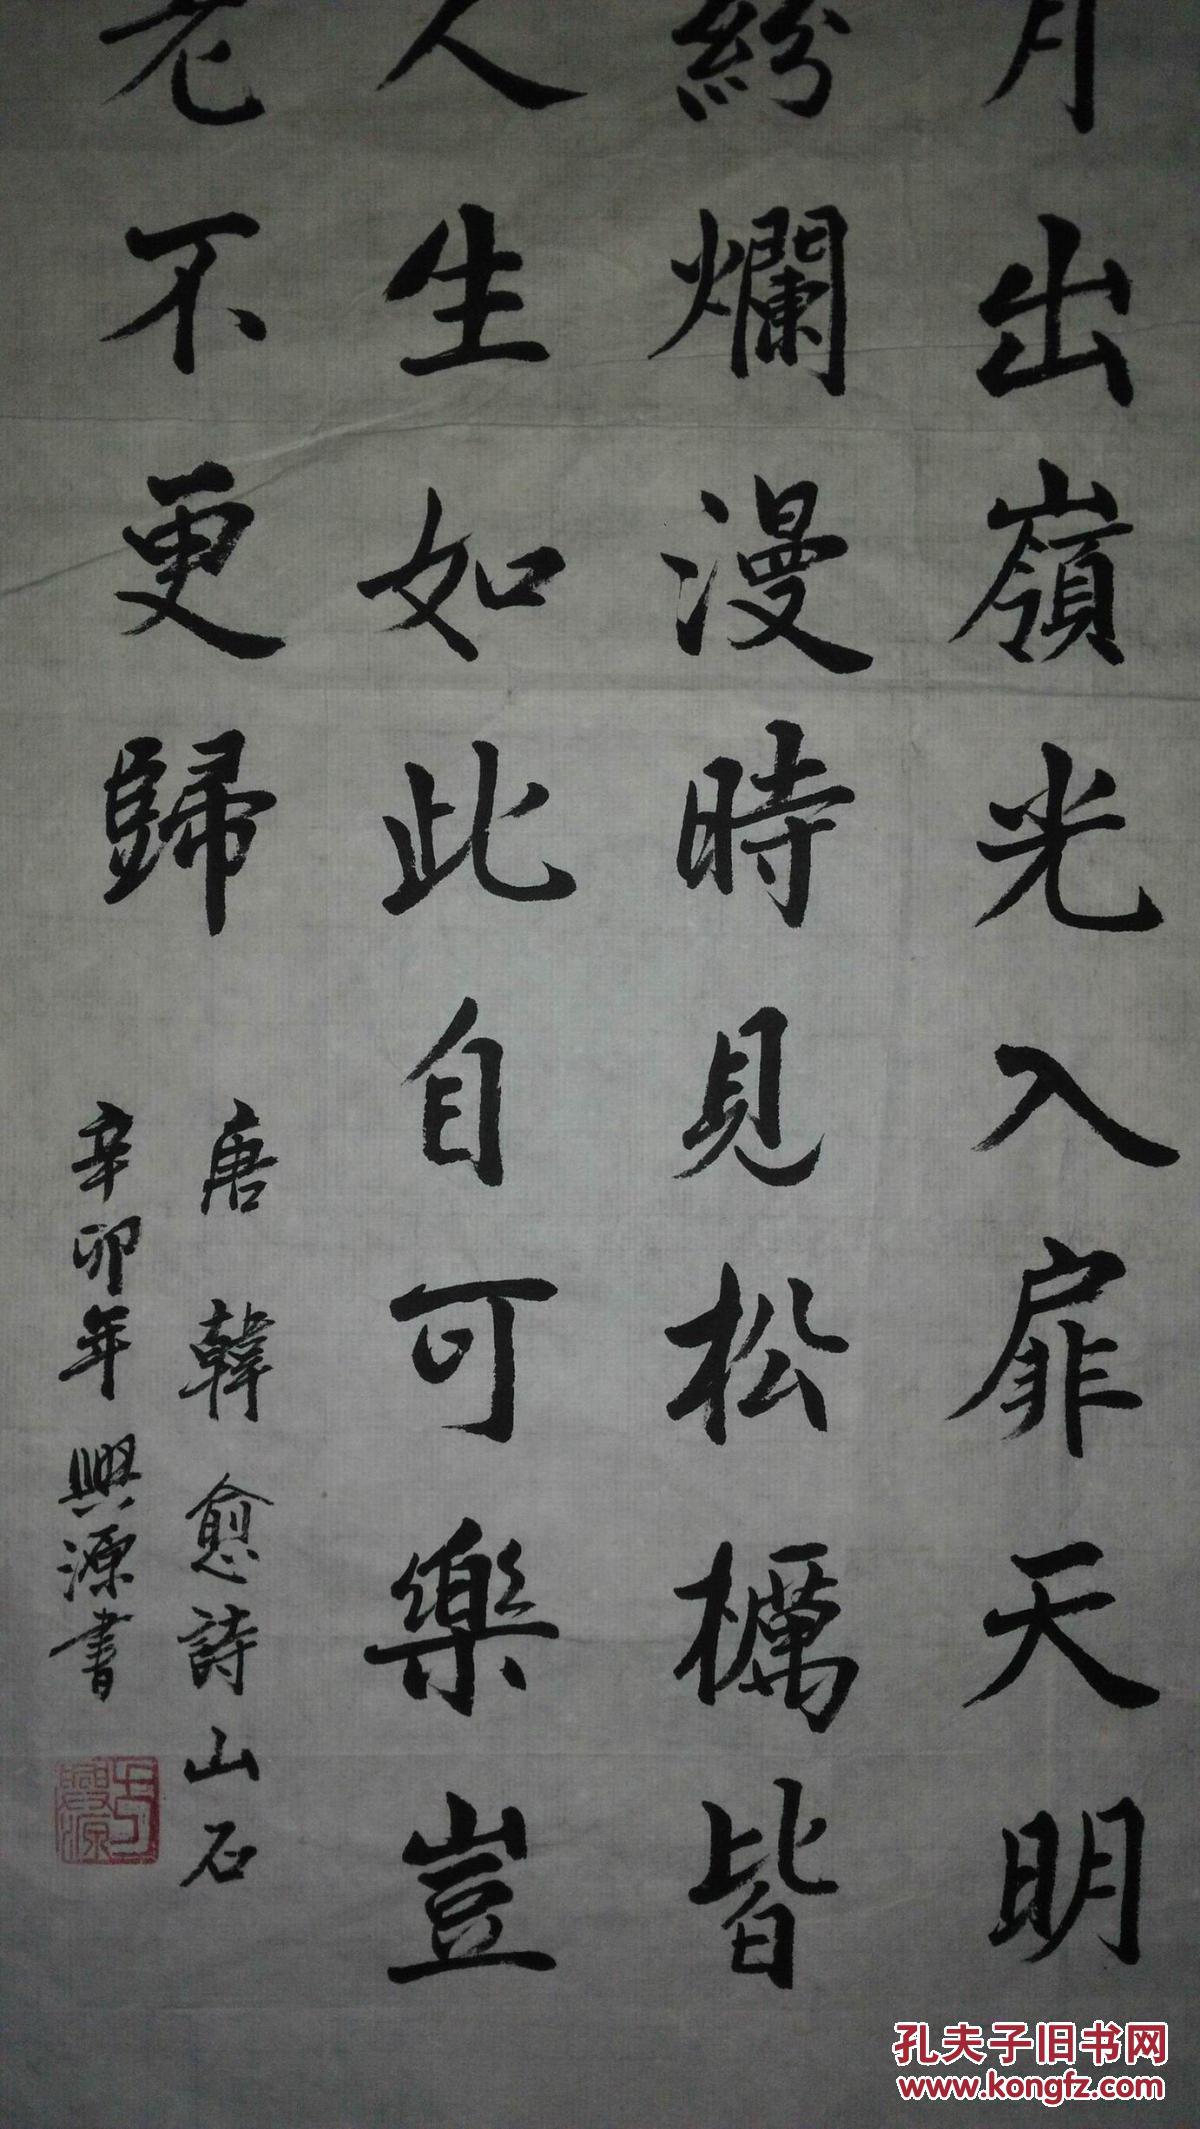 月出嶺光入扉天明
紛爛漫時見松櫔皆
人生如此自可樂豈
老不更歸
唐韓愈詩山石
辛卯年興源書
孔夫子旧书网
www.kongfz.com